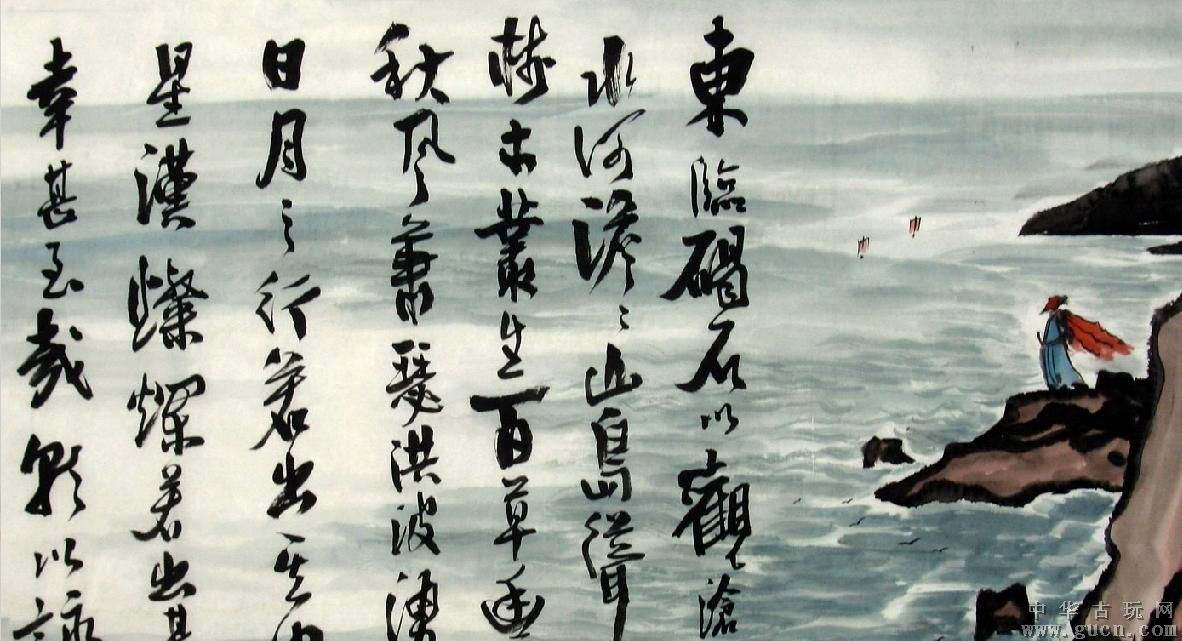 東臨碣石以觀滄
水何澹々山島聳
樹木叢生百草豐
秋風蕭瑟洪波湧
日月之行若出其中
星漢燦爛若出其
幸甚至哉歌以詠
中华古玩网
www.gucn.com